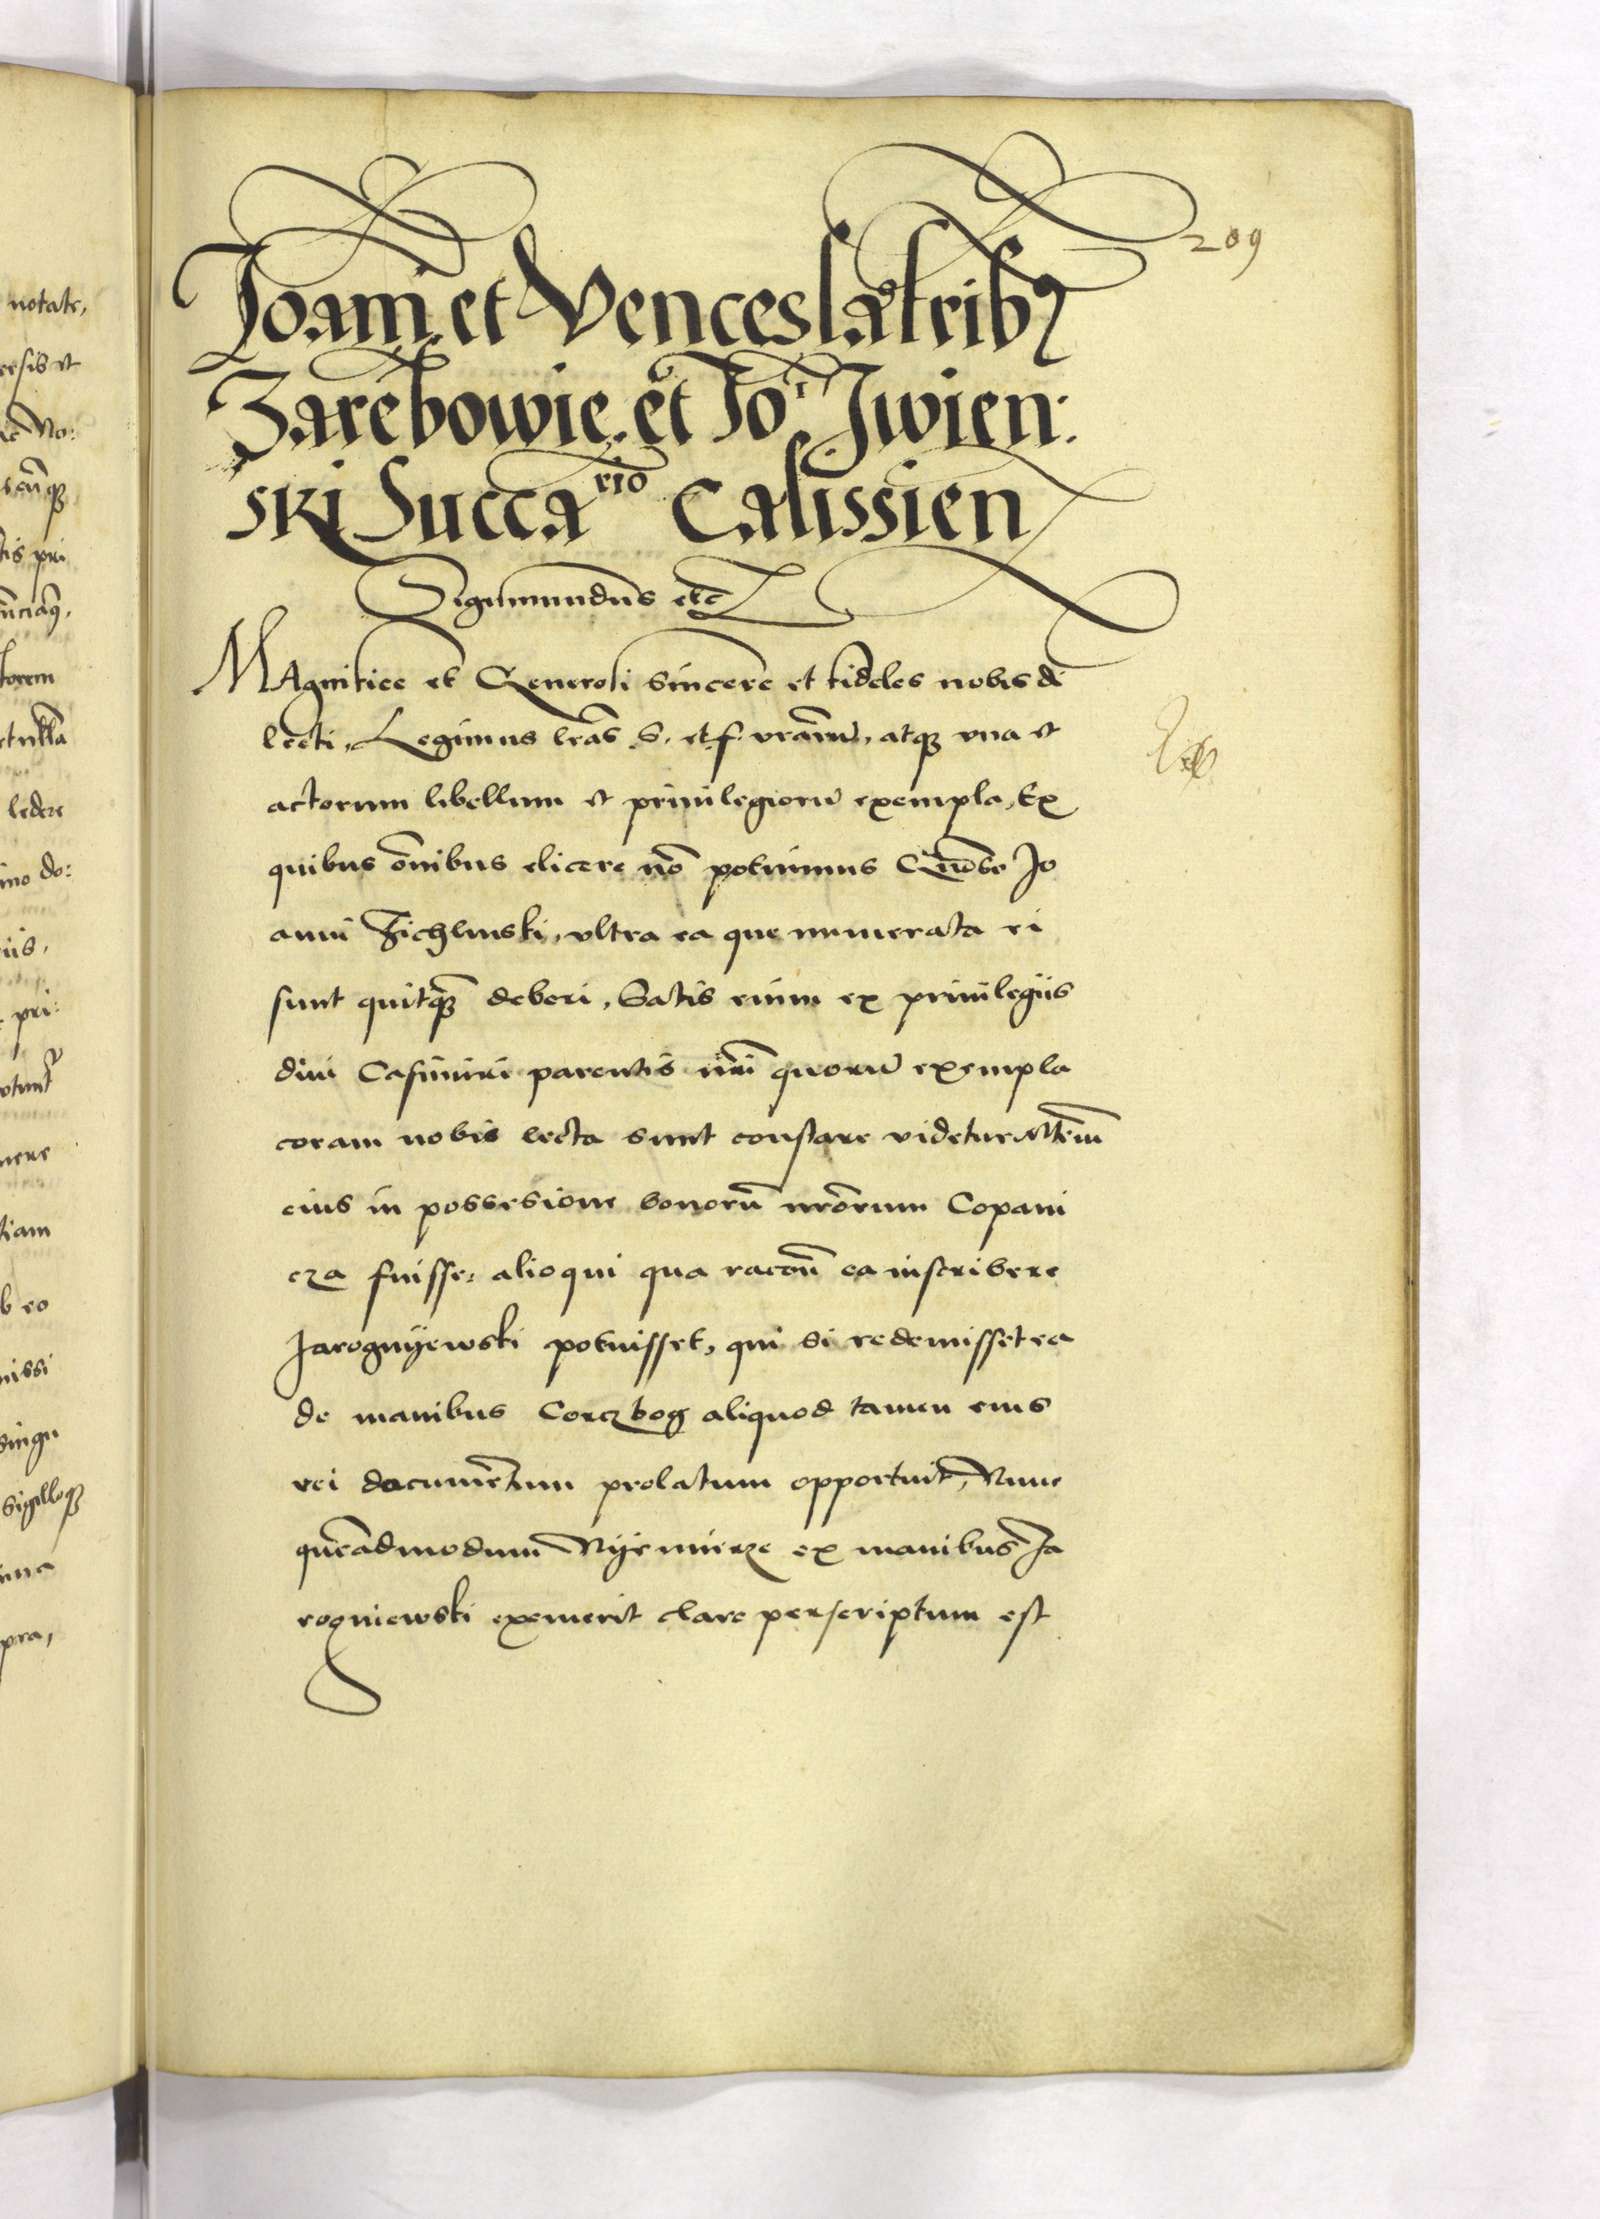 209
Joanni et Venceslao fratribꝫ
Zarebowie. et Jo. Jwien:
ski Succario Calissien
Sigismundus etc
MAgnifice et Generosi sincere et fideles nobis di
lecti, Legimus lr̃as S. et f. vrãrũ, atqꝫ vna et
actorum libellum et priuilegiorũ exempla, Ex
quibus õmnibus elicere nõ potuimus Jo
anni Zichlinski, vltra ea que numerata ei
sunt quitqꝫ deberi, Satis enim ex priuilegijs
diui Casimiri parentis nr̃i quorũ exempla
coram nobis lecta sunt constare videtur
eius in possesione bonorũ nr̃orum Copani
cza fuisse: alioqui qua racõn ea inscribere
Jarognijewski potuisset, qui si redemisset ea
de manibus Corczbog aliquod tamen eius
rei documẽtum prolatum opportuit, Nunc
quẽadmodum Nijemierze ex manibus Ja
rogniewski exemerit clare perscriptum est
notate,
ersis et
No:
pri
torem
ledere
ino do:
iis,
pri:
nere
tiam
b eo
nissi
singu
sigilloqꝫ
pra,